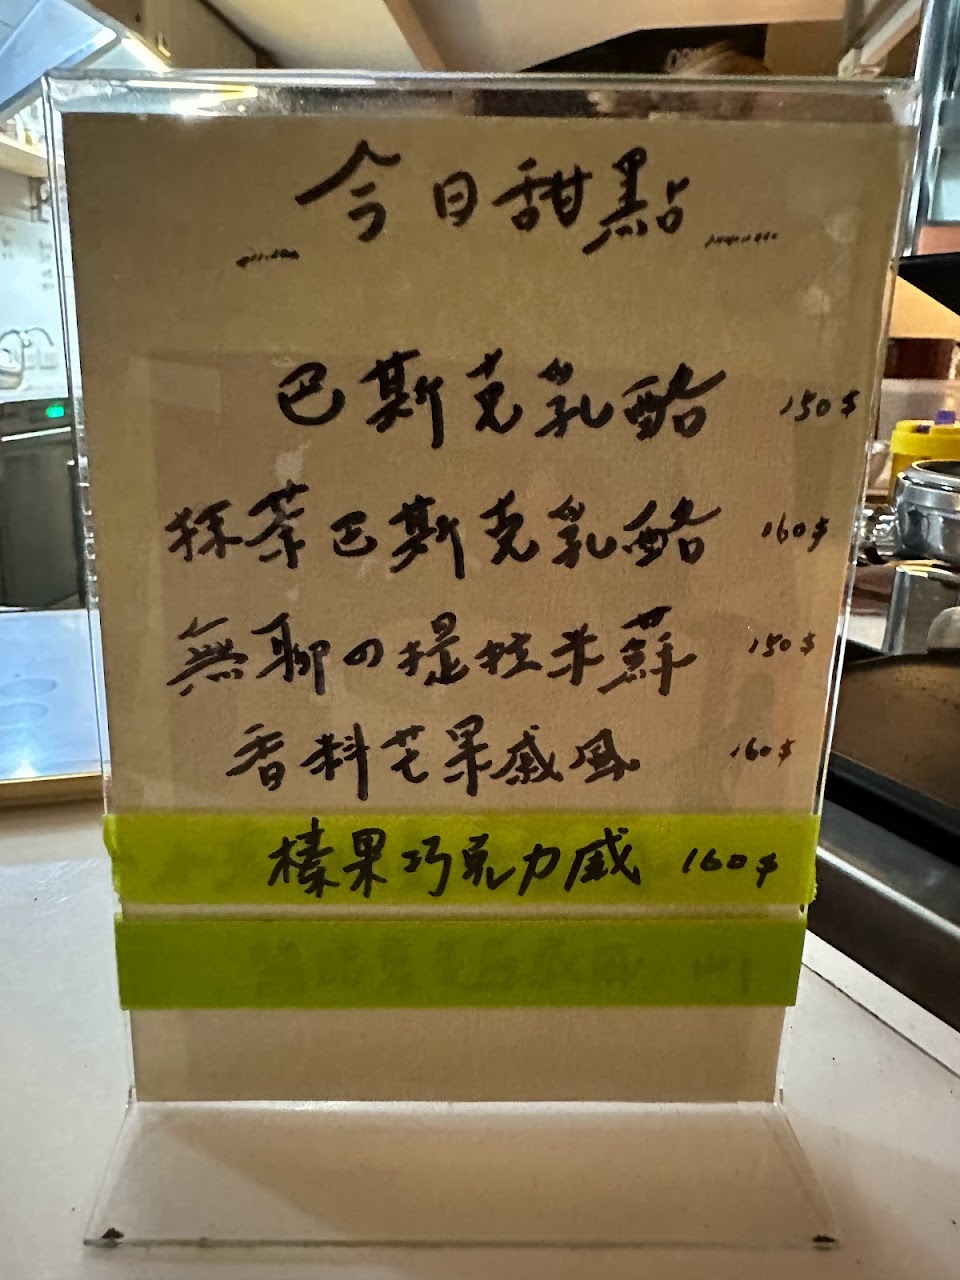 今日甜點
巴斯克乳酪 150$
抹茶巴斯克乳酪 160$
無聊の提拉米蘇 150$
香料芒果戚風 160$
榛果巧克力戚 160$